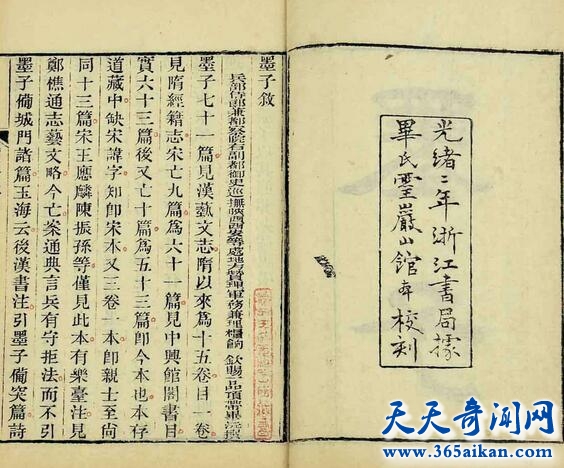 光緒二年浙江書局據
畢氏靈巖山館本校刻
墨子敘
兵部侍郎兼都察院右副都御史巡撫陝西西安等處地方贊理軍務兼理糧餉 欽賜一品頂帶畢沅撰
墨子七十一篇見漢藝文志隋以來爲十五卷目一卷
見隋經籍志宋亡九篇爲六十一篇見中興館閣書目
實六十三篇後又亡十篇爲五十三篇卽今本也本存
道藏中缺宋諱字知卽宋本又三卷一本卽親士至尚
同十三篇宋王應麟陳振孫等僅見此本有樂臺注見
鄭樵通志藝文略今亡案通典言兵有守拒法而不引
墨子備城門諸篇玉海云後漢書注引墨子備突篇詩
天天奇闻网
www.365aikan.com